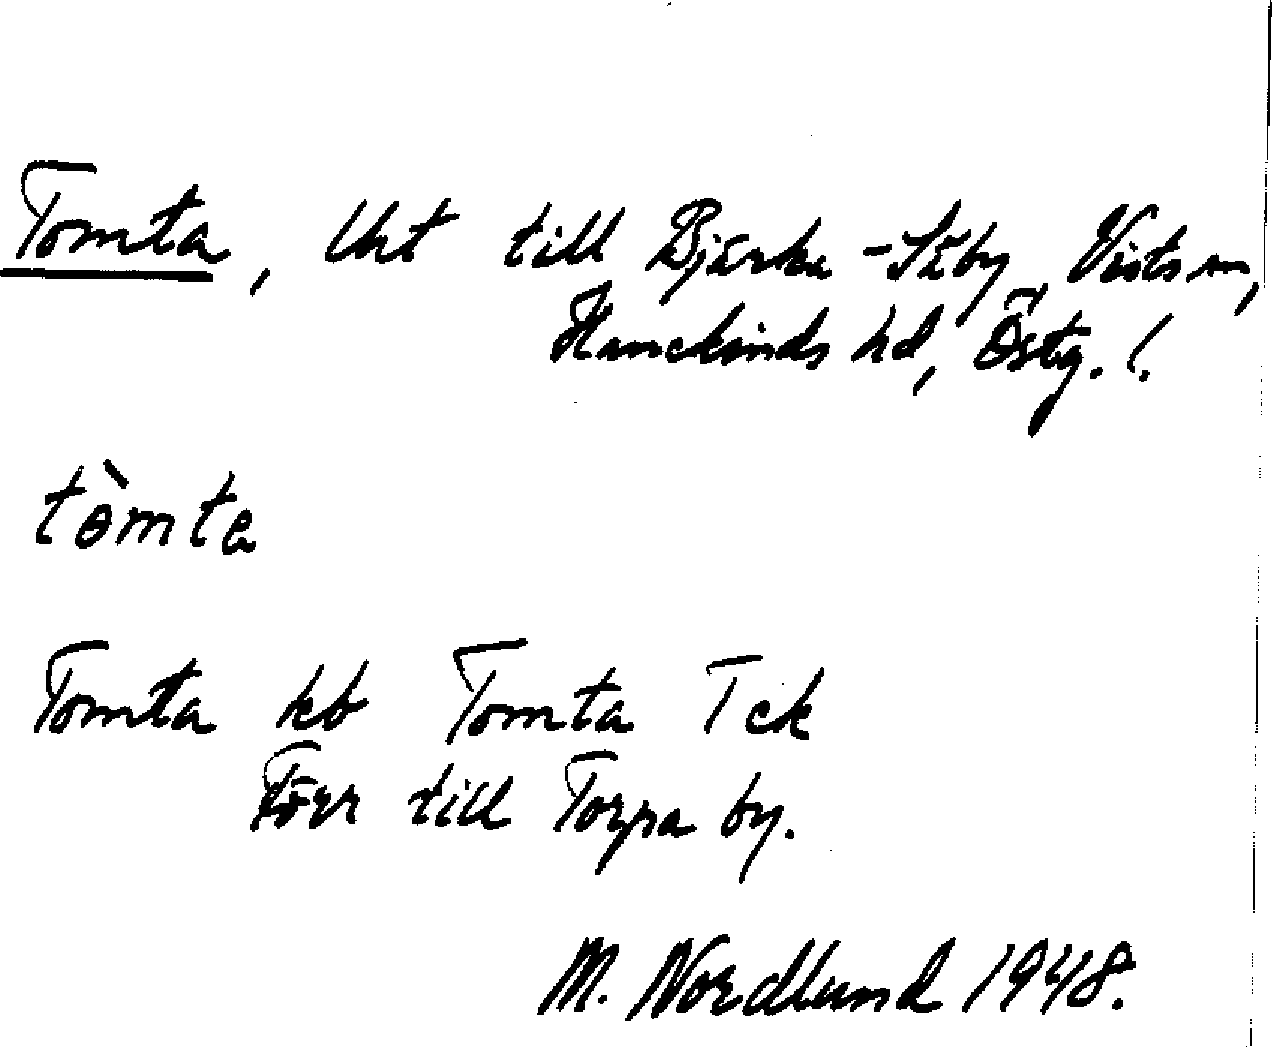 Tomta, Uht till Bjärka-Säby, Vists sn,
Hanekinds hd, Östg. l.
tòmta
Tomta kb Tomta T ek
Förr till Torpa by.
M. Nordlund 1948.